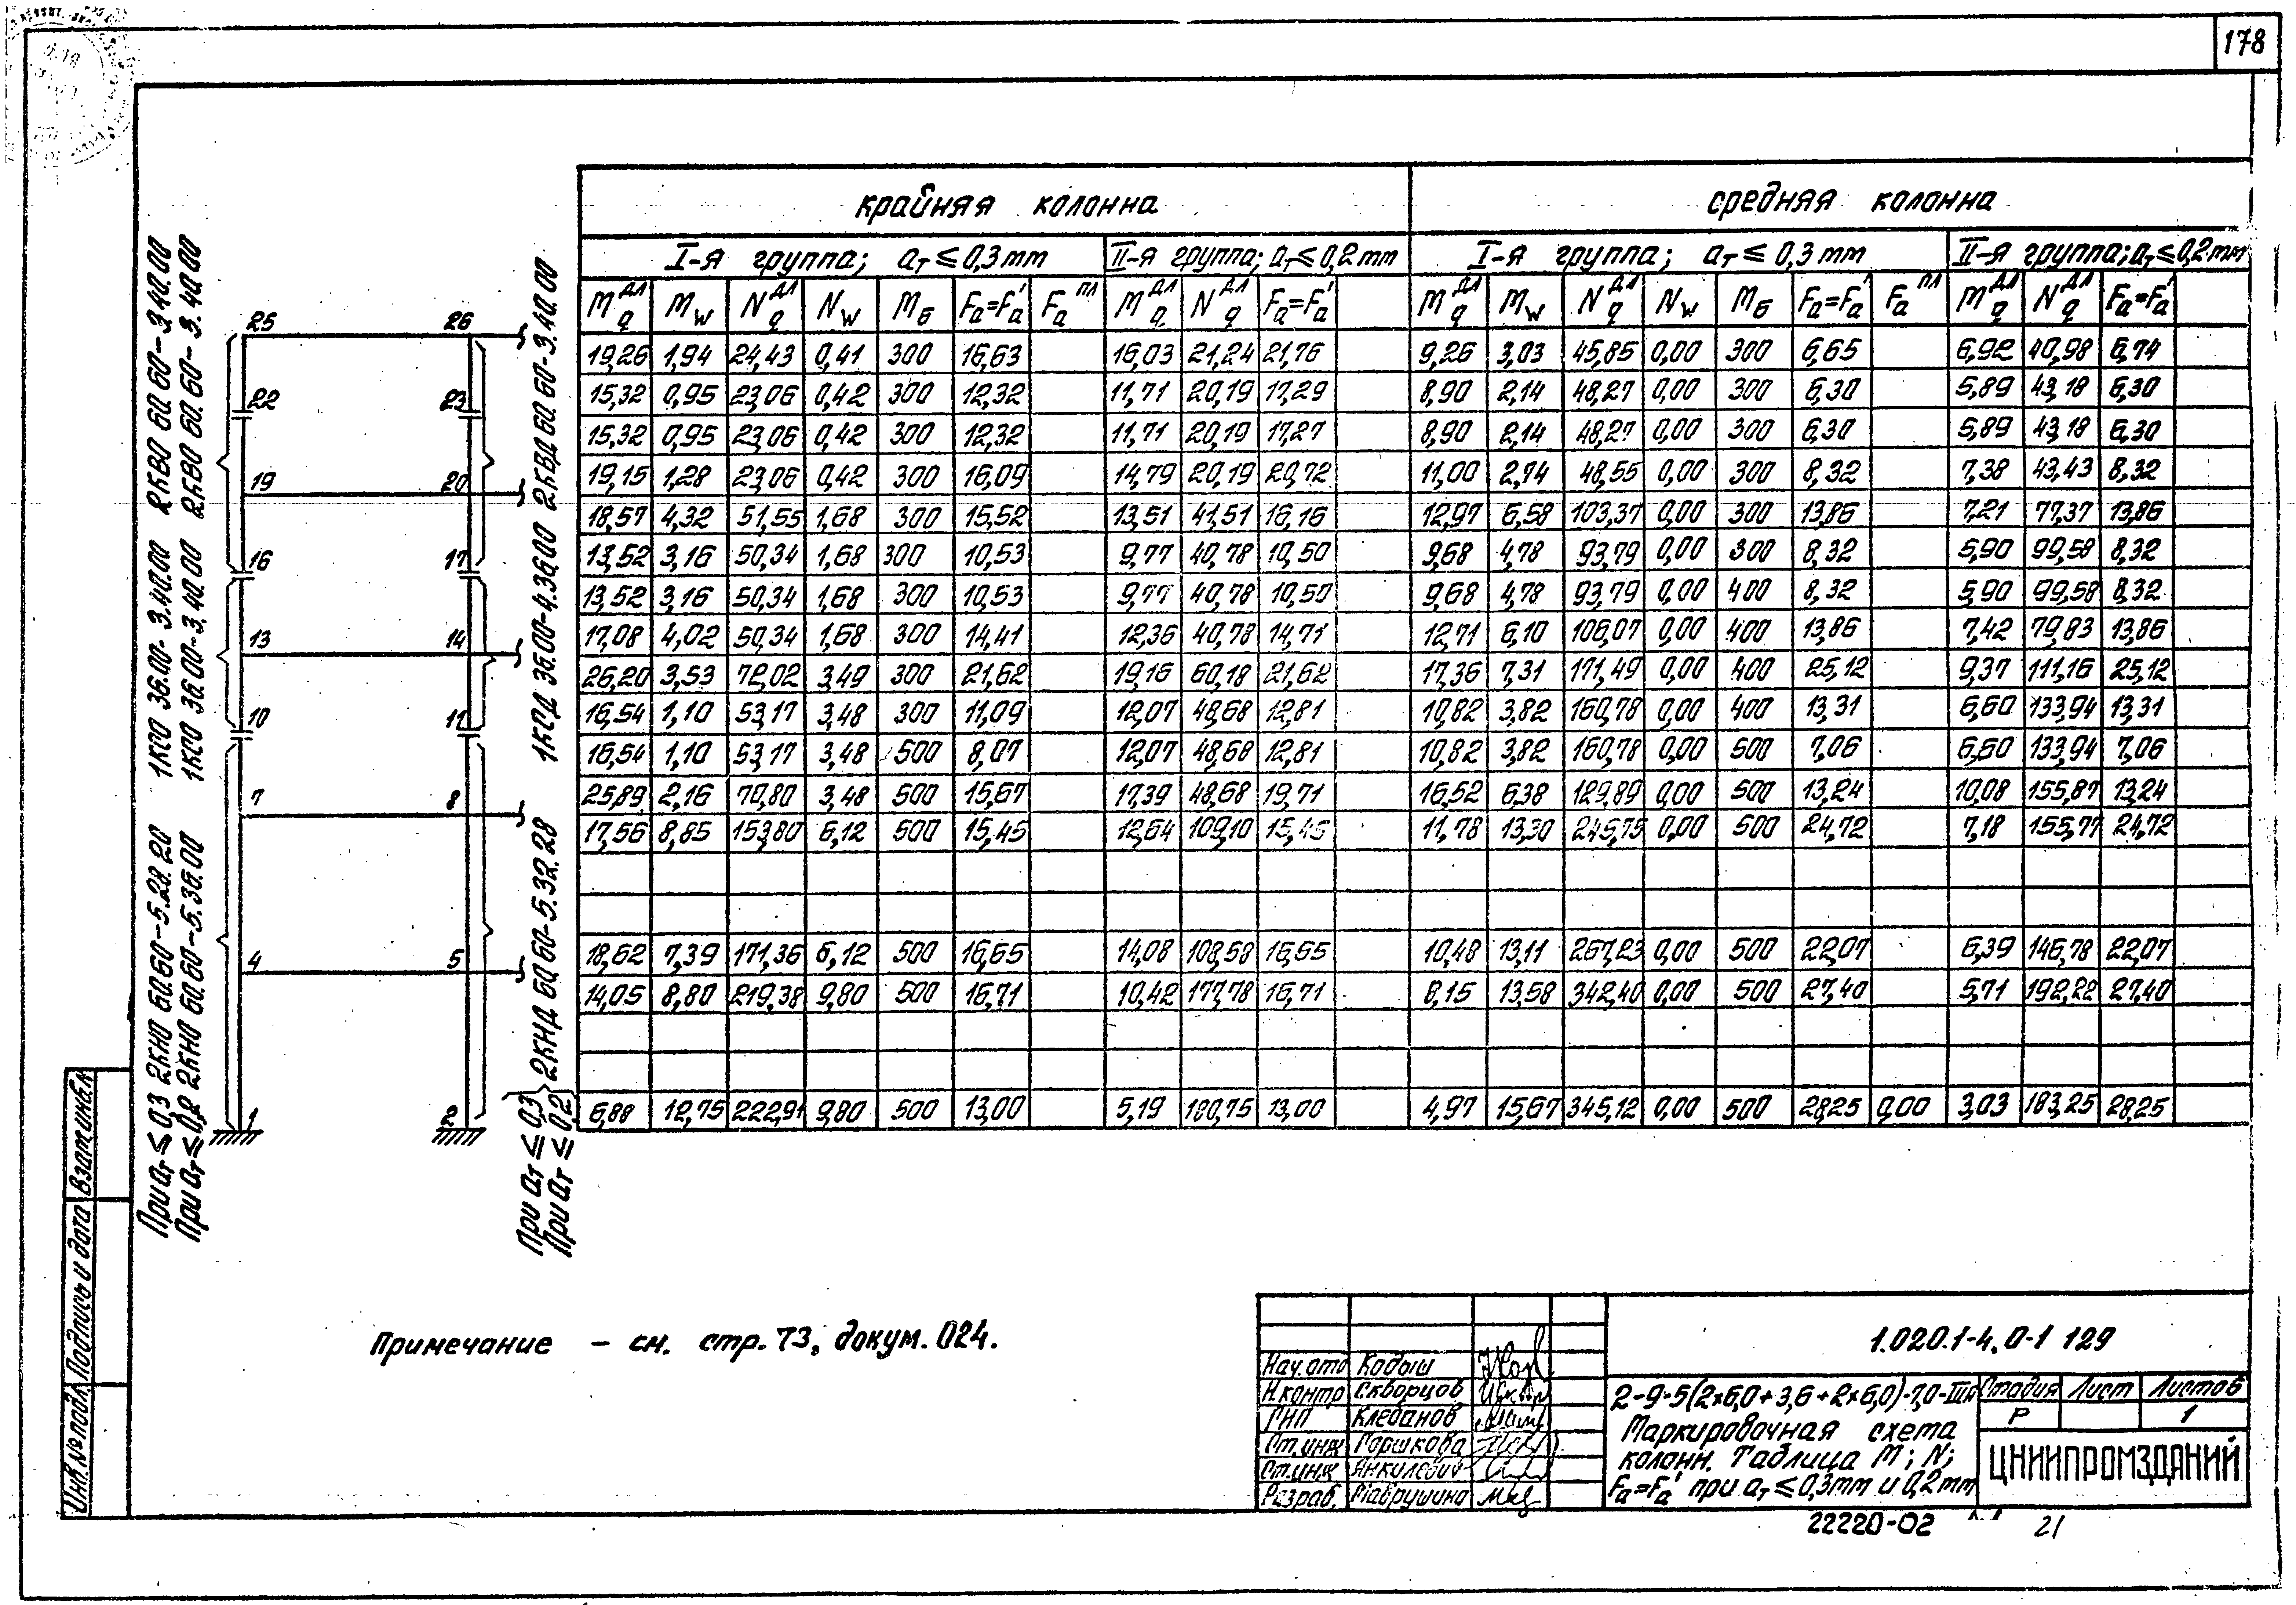 178
крайняя колонна
средняя колонна
I-я группа; aт ≤ 0,3 mm
II-я группа; aт ≤ 0,2 mm
I-я группа; aт ≤ 0,3 mm
II-я группа; aт ≤ 0,2 mm
Mqдл Mw Nqдл Nw Mб Fa=Fa' Faпл Mqдл Nqдл Fa=Fa' Mqдл Mw Nqдл Nw Mб Fa=Fa' Faпл Mqдл Nqдл Fa=Fa'
19,26 1,94 24,43 0,41 300 16,63 16,03 21,24 21,76 9,26 3,03 45,85 0,00 300 6,65 6,92 40,98 6,74
15,32 0,95 23,06 0,42 300 12,32 11,71 20,19 17,29 8,90 2,14 48,27 0,00 300 6,30 5,89 43,18 6,30
15,32 0,95 23,06 0,42 300 12,32 11,71 20,19 17,27 8,90 2,14 48,27 0,00 300 6,30 5,89 43,18 6,30
19,15 1,28 23,06 0,42 300 16,09 14,79 20,19 20,72 11,00 2,74 48,55 0,00 300 8,32 7,38 43,43 8,32
18,57 4,32 51,55 1,68 300 15,52 13,51 41,51 16,16 12,97 6,58 103,37 0,00 300 13,86 7,21 77,37 13,86
13,52 3,16 50,34 1,68 300 10,53 9,77 40,78 10,50 9,68 4,78 93,79 0,00 300 8,32 5,90 99,58 8,32
13,52 3,16 50,34 1,68 300 10,53 9,77 40,78 10,50 9,68 4,78 93,79 0,00 400 8,32 5,90 99,58 8,32
17,08 4,02 50,34 1,68 300 14,41 12,36 40,78 14,71 12,71 6,10 106,07 0,00 400 13,86 7,42 79,83 13,86
26,20 3,53 72,02 3,49 300 21,62 19,16 60,18 21,62 17,36 7,31 171,49 0,00 400 25,12 9,37 111,16 25,12
16,54 1,10 53,17 3,48 300 11,09 12,07 48,68 12,81 10,82 3,82 160,78 0,00 400 13,31 6,60 133,94 13,31
16,54 1,10 53,17 3,48 500 8,07 12,07 48,68 12,81 10,82 3,82 160,78 0,00 500 7,06 6,60 133,94 7,06
25,89 2,16 70,80 3,48 500 15,67 17,39 48,68 19,71 16,52 6,38 129,89 0,00 500 13,24 10,08 155,87 13,24
17,56 8,85 153,80 6,12 500 15,45 12,64 109,10 15,45 11,78 13,30 245,75 0,00 500 24,72 7,18 155,77 24,72
18,62 7,39 171,36 6,12 500 16,65 14,08 108,58 16,65 10,48 13,11 267,23 0,00 500 22,07 6,39 146,78 22,07
14,05 8,80 219,38 9,80 500 16,71 10,42 177,78 16,71 8,15 13,58 342,40 0,00 500 27,40 5,71 192,22 27,40
6,88 12,75 222,91 9,80 500 13,00 5,19 180,75 13,00 4,97 15,67 345,12 0,00 500 28,25 0,00 3,03 183,25 28,25
25 26
22 23
19 20
16 17
13 14
10 11
7 8
4 5
1 2
При aт ≤ 0,3 2КНО 60.60-5.28.20 1КСО 36.00-3.40.00 2КВО 60.60-3.40.00
При aт ≤ 0,2 2КНО 60.60-5.36.00 1КСО 36.00-3.40.00 2КВО 60.60-3.40.00
При aт ≤ 0,3
При aт ≤ 0,2
2КНД 60.60-5.32.28 1КСД 36.00-4.36.00 2КВД 60.60-3.40.00
Примечание - см. стр. 73, докум. 024.
Инв. № подл. Подпись и дата Взам.инв.№
Нач.отд Кодыш
Н.контр Скворцов
ГИП Клебанов
Ст.инж Горшкова
Ст.инж Янкилевич
Разраб. Маврушина
1.020.1-4.0-1 129
2-9-5(2×6,0+3,6+2×6,0)-7,0-IIIк
Маркировочная схема
колонн. Таблица M; N;
Fa=Fa' при aт ≤ 0,3mm и 0,2mm
Стадия Лист Листов
Р 1
ЦНИИПРОМЗДАНИЙ
22220-02 21